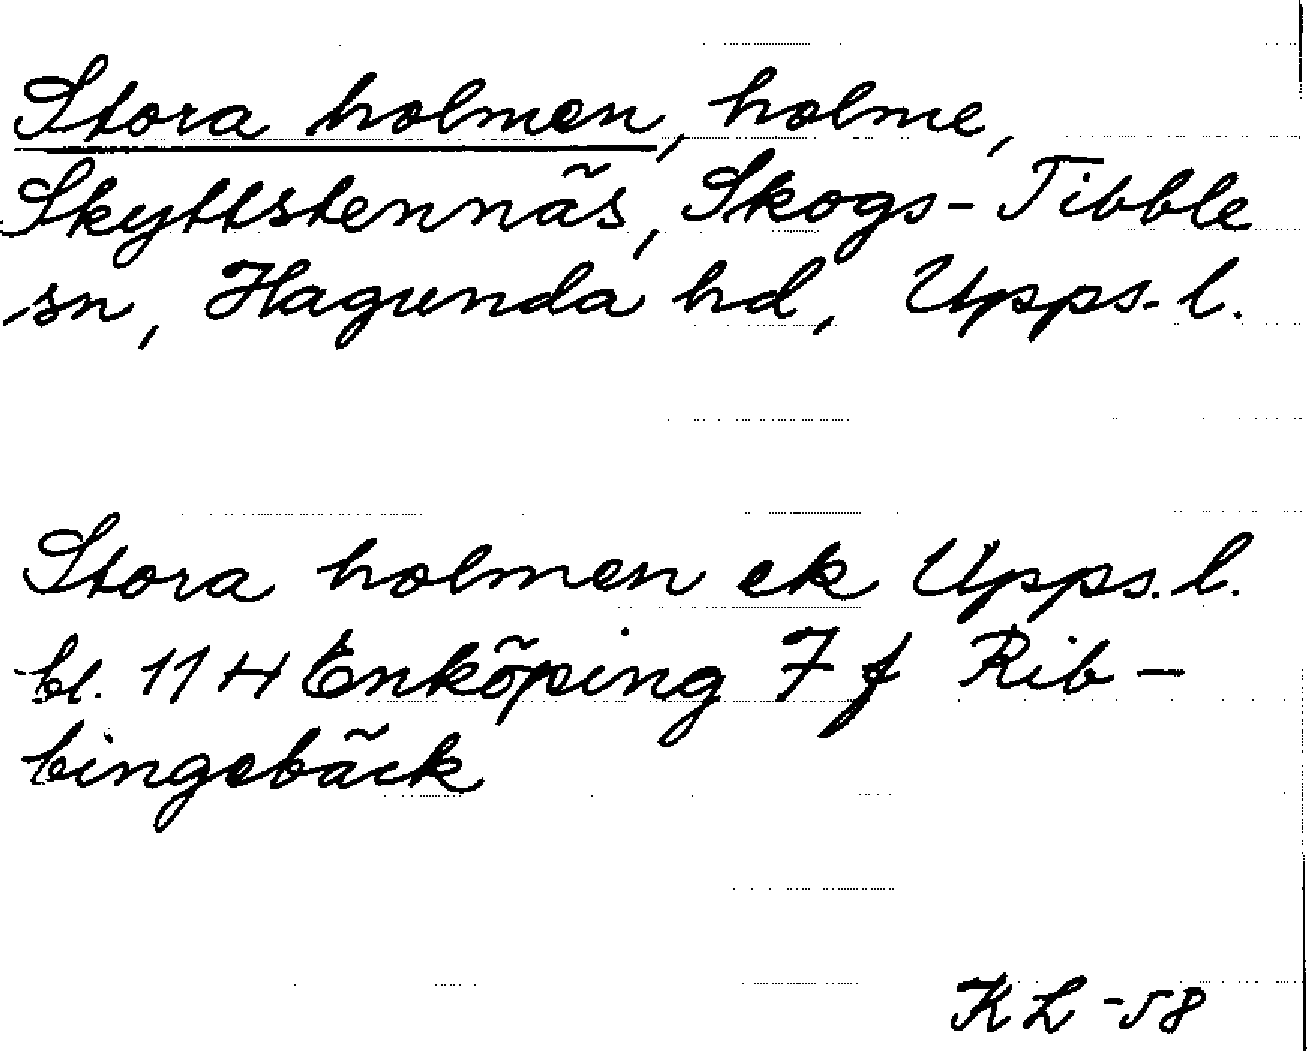 Stora holmen, holme,
Skyttstennäs, Skogs-Tibble
sn, Hagunda hd, Upps. l.
Stora holmen ek Upps. l.
bl. 11 H Enköping 7 f Rib-
bingebäck
KL -58